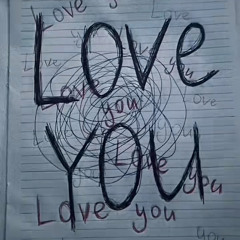 Love y
Love
LOVe
you
Love
you
ove
YOU
Love
you
Love you
you